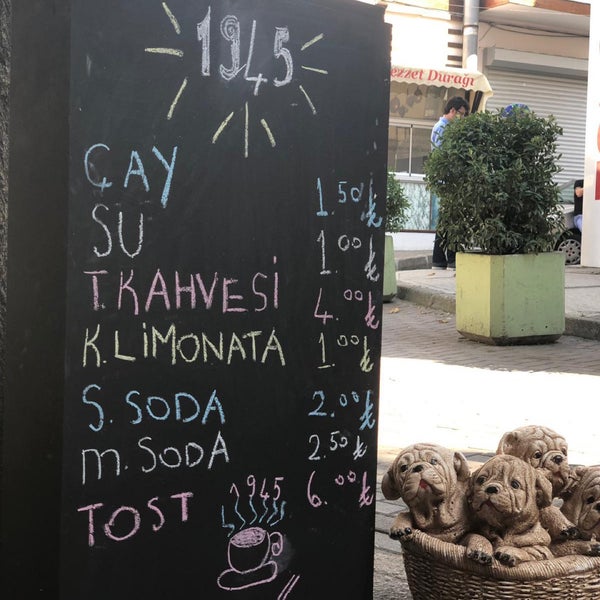 1945
ezzet Durağı
ÇAY 1.50 ₺
SU 1.00 ₺
T.KAHVESİ 4.00 ₺
K.LİMONATA 1.00 ₺
S.SODA 2.00 ₺
M.SODA 2.50 ₺
TOST 6.00 ₺
1945